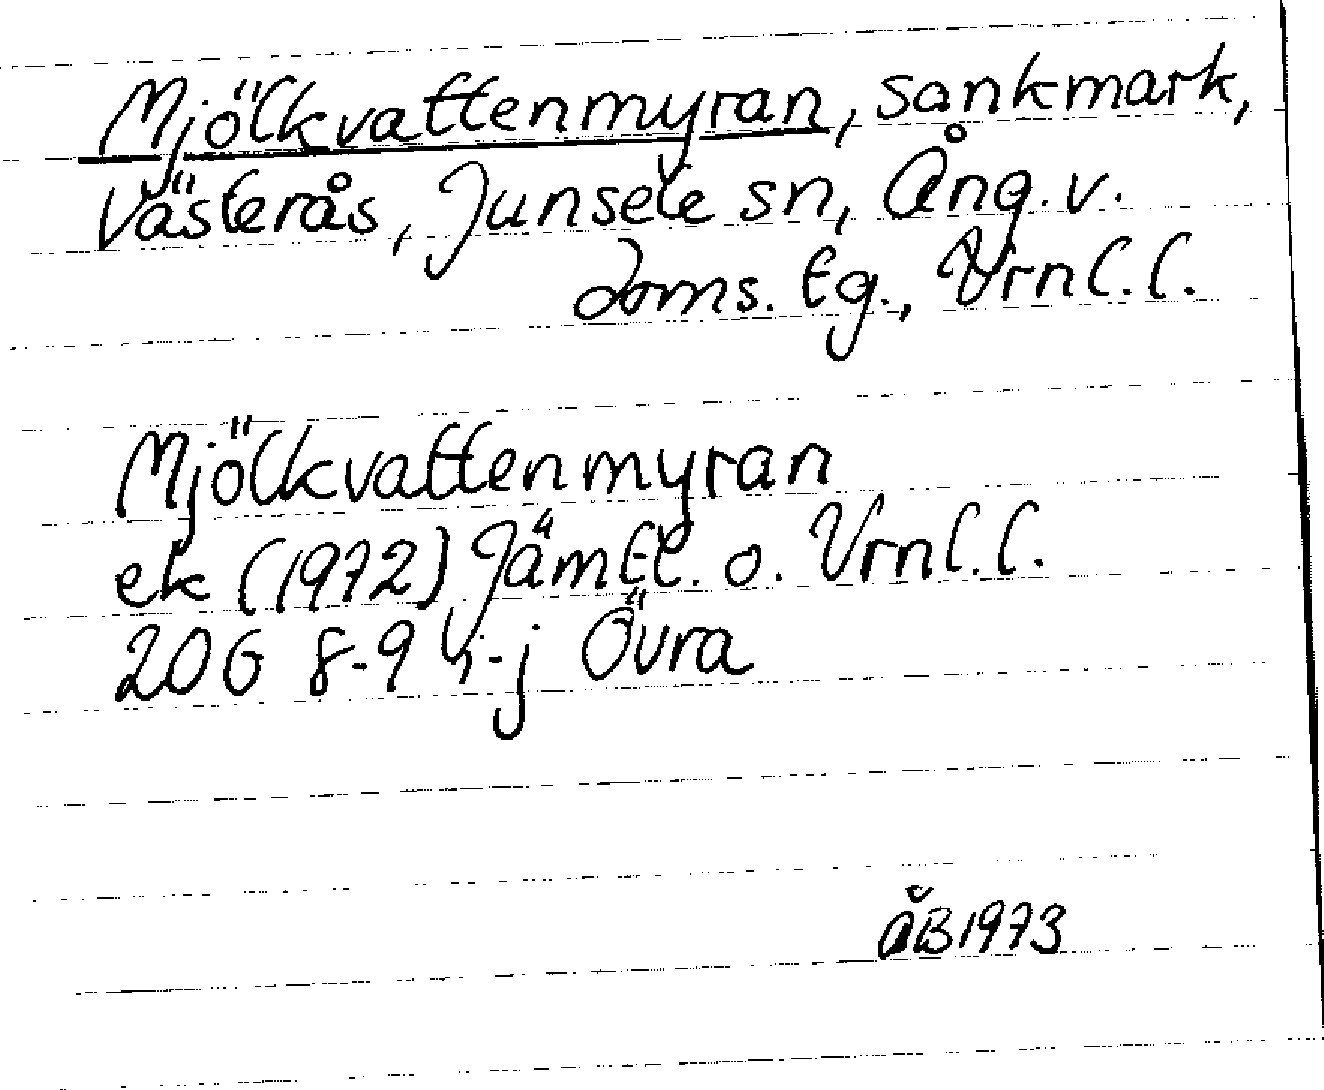 Mjölkvattenmyran, sankmark,
Västerås, Junsele sn, Ång. v.
doms. tg., Vrnl. l.
Mjölkvattenmyran
ek (1972) Jämtl. o. Vrnl. l.
20G 8-9 h-j Övra
ÅB 1973